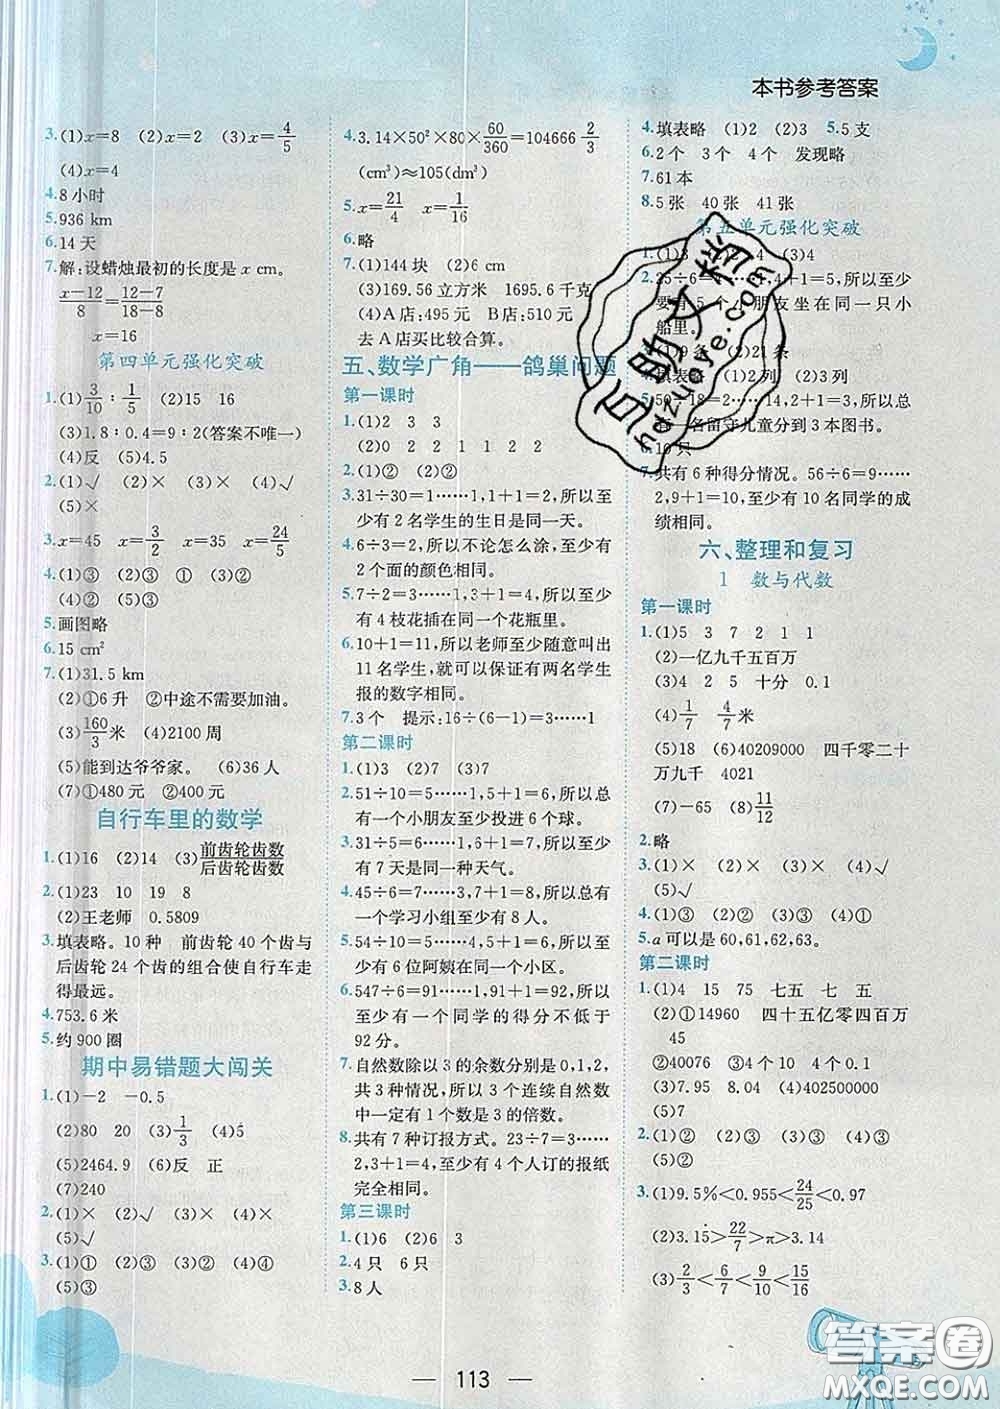 本书参考答案
3.(1)x=8 (2)x=2 (3)x=4/5
(4)x=4
4.8小时
5.936 km
6.14天
7.解:设蜡烛最初的长度是x cm。
(x-12)/8=(12-7)/(18-8)
x=16
第四单元强化突破
1.(1)3/10∶1/5 (2)15 16
(3)1.8∶0.4=9∶2(答案不唯一)
(4)反 (5)4.5
2.(1)√ (2)× (3)× (4)√
(5)×
3.x=45 x=3/2 x=35 x=24/5
4.(1)③ (2)③ (3)① (4)③
(5)②
5.画图略
6.15 cm²
7.(1)31.5 km
(2)①6升 ②中途不需要加油。
(3)160/3米 (4)2100周
(5)能到达爷爷家。 (6)36人
(7)①480元 ②400元
自行车里的数学
1.(1)16 (2)14 (3)前齿轮齿数/后齿轮齿数
2.(1)23 10 19 8
(2)王老师 0.5809
3.填表略。10种 前齿轮40个齿与
后齿轮24个齿的组合使自行车走
得最远。
4.753.6米
5.约900圈
期中易错题大闯关
1.(1)-2 -0.5
(2)80 20 (3)1/3 (4)5
(5)2464.9 (6)反 正
(7)240
2.(1)× (2)√ (3)× (4)×
(5)√
3.(1)① (2)③ (3)② (4)③
(5)③
4.3.14×50²×80×60/360=104666 2/3
(cm³)≈105(dm³)
5.x=21/4 x=1/16
6.略
7.(1)144块 (2)6cm
(3)169.56立方米 1695.6千克
(4)A店:495元 B店:510元
去A店买比较合算。
五、数学广角——鸽巢问题
第一课时
1.(1)2 3 3
(2)0 2 1 2 2 1 2
2.(1)② (2)②
3.31÷30=1……1,1+1=2,所以至
少有2名学生的生日是同一天。
4.6÷3=2,所以不论怎么涂,至少有
2个面的颜色相同。
5.7÷2=3……1,3+1=4,所以至少
有4枝花插在同一个花瓶里。
6.10+1=11,所以老师至少随意叫出
11名学生,就可以保证有两名学生
报的数字相同。
7.3个 提示:16÷(6-1)=3……1
第二课时
1.(1)3 (2)7 (3)7
2.51÷10=5……1,5+1=6,所以总
有一个小朋友至少投进6个球。
3.31÷5=6……1,6+1=7,所以至少
有7天是同一种天气。
4.45÷6=7……3,7+1=8,所以总有
一个学习小组至少有8人。
5.54÷10=5……4,5+1=6,所以至
少有6位阿姨在同一个小区。
6.547÷6=91……1,91+1=92,所以
至少有一名同学的得分不低于
92分。
7.自然数除以3的余数分别是0,1,2,
共3种情况,所以3个连续自然数
中一定有1个数是3的倍数。
8.共有7种订报方式。23÷7=3……
2,3+1=4,所以至少4个人订的报纸
完全相同。
第三课时
1.(1)6 (2)6 3
2.4只 6只
3.8人
4.填表略 (1)2 (2)3 5.5支
6.2个 3个 4个 发现略
7.61本
8.5张 40张 41张
第五单元强化突破
1.(1)3 (3)4
2.25÷6=4……1,4+1=5,所以至少
要有5个小朋友坐在同一只小
船里。
3.(1)9条 (2)21条
4.填表略 (1)2列 (2)3列
5.50÷18=2……14,2+1=3,所以总
有一名留守儿童分到3本图书。
6.10只
7.共有6种得分情况。56÷6=9……
2,9+1=10,所以至少有10名同学的成
绩相同。
六、整理和复习
1 数与代数
第一课时
1.(1)5 3 7 2 1 1
(2)一亿九千五百万
(3)4 2 5 十分 0.1
(4)1/7 4/7米
(5)18 (6)40209000 四千零二十
万九千 4021
(7)-65 (8)11/12
2.略
3.(1)× (2)× (3)× (4)√
4.(1)③ (2)② (3)① (4)①
5.a可以是60,61,62,63。
第二课时
1.(1)4 15 75 七五 七五
(2)①14960 四十五亿零四百万
45
②40076 ③40076 4
(3)7.95 8.04 (4)402500000
2.(1)② (2)③ (3)② (4)②
(5)②
3.(1)9.5%<0.955<24/25<0.97
(2)3.1̇>22/7>π>3.14
(3)2/3<6/7<9/10<15/16
百助文档
hdzuoye.com
113
答案圈
MXQE.COM